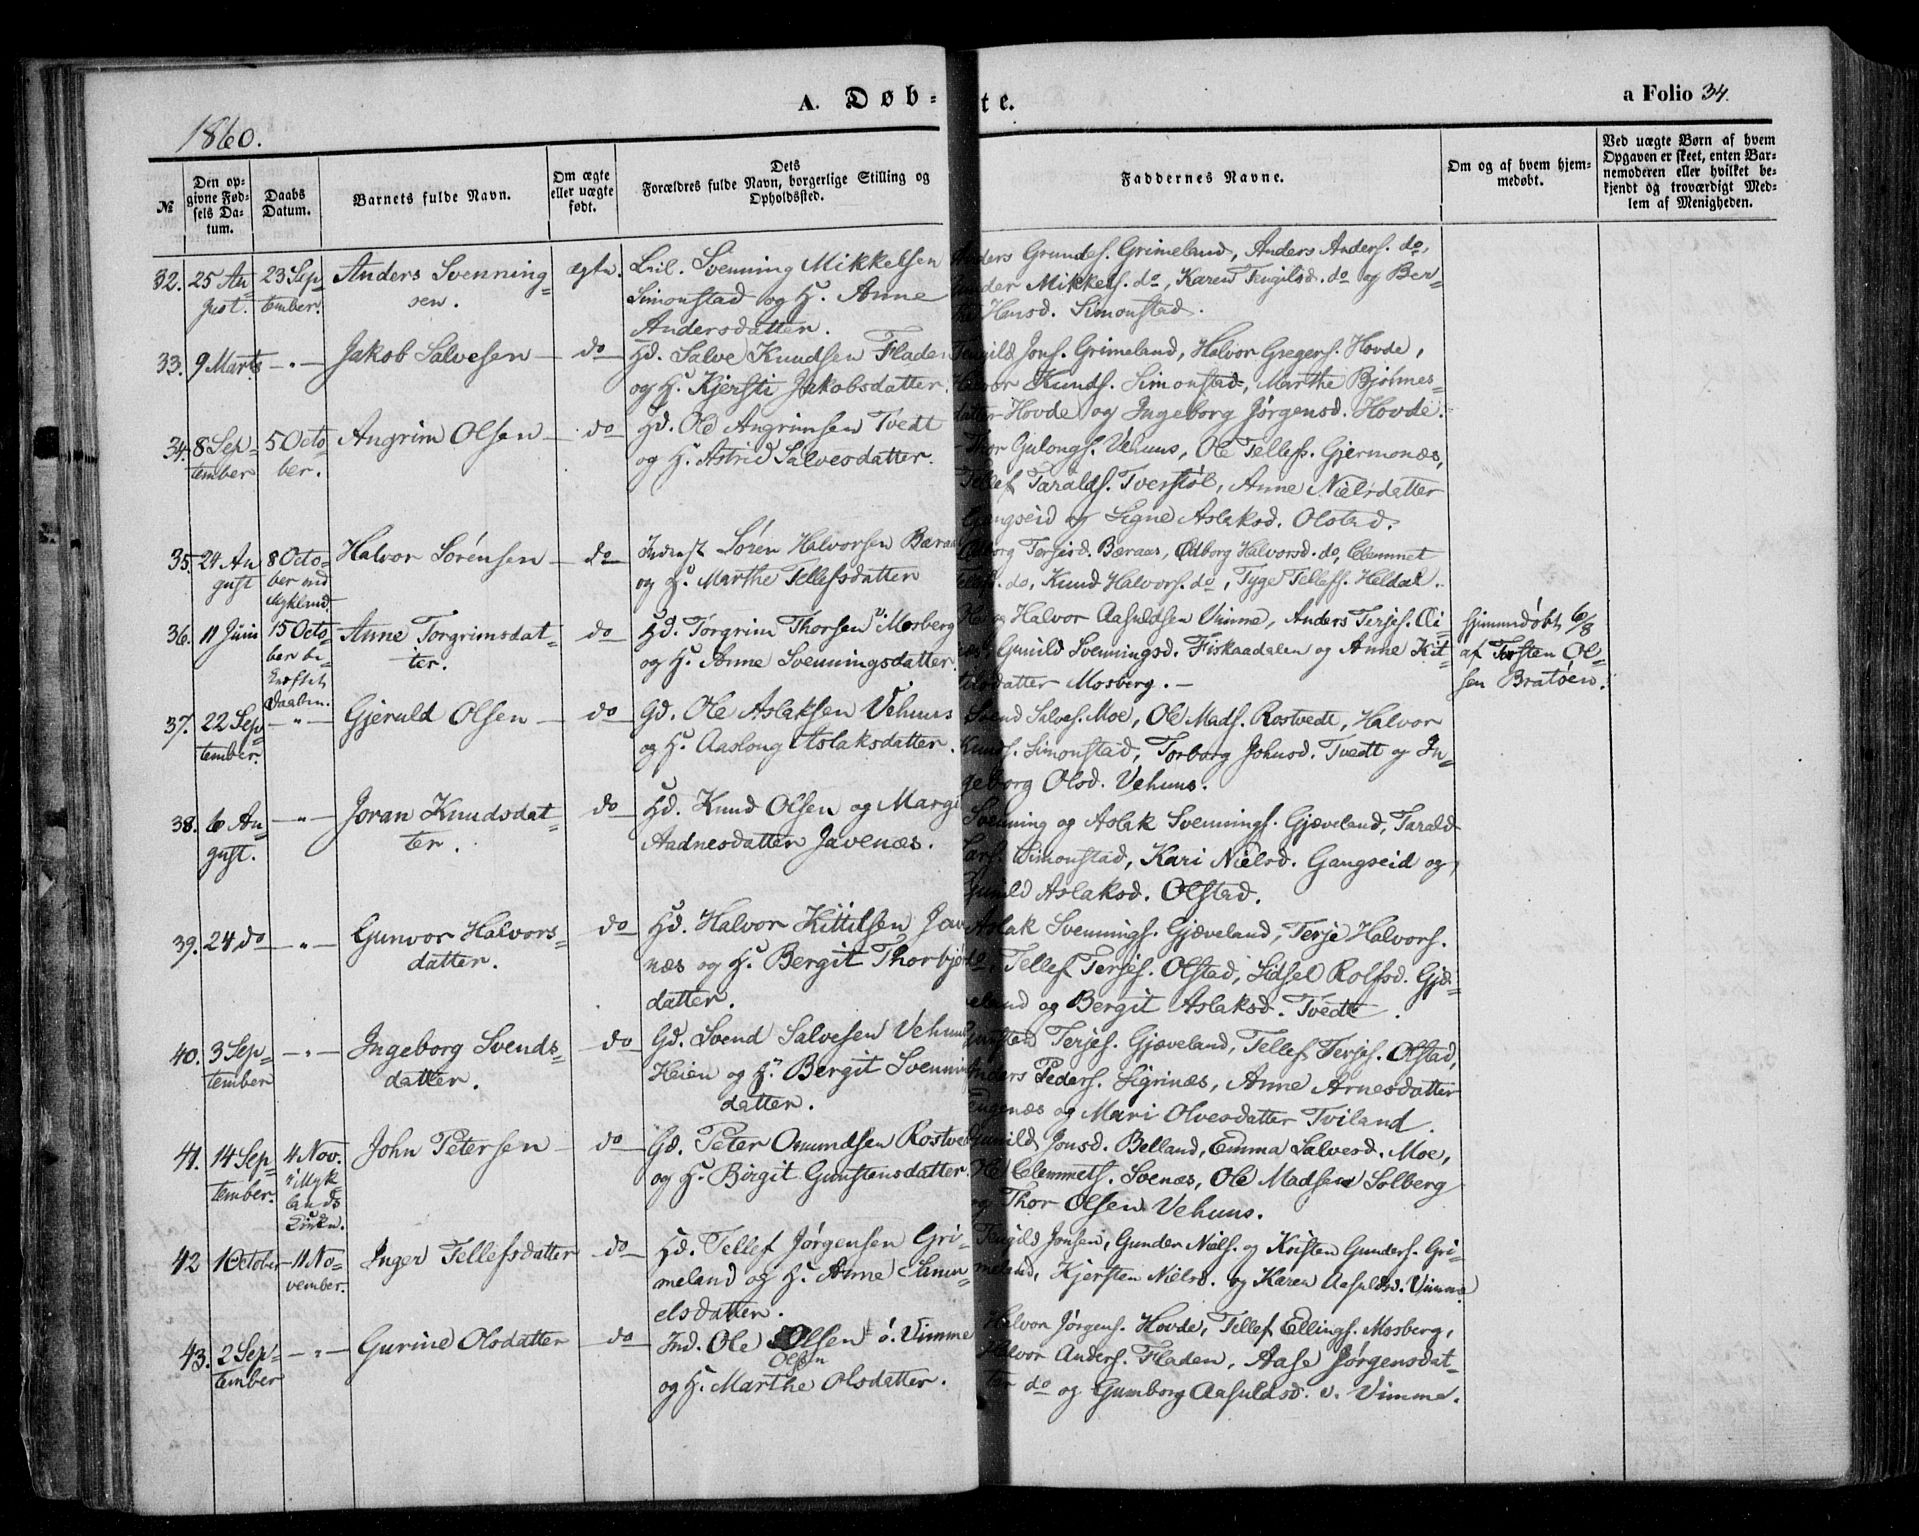 A. Døb-
te.
a Folio 34.
1860.
№
Den op-
givne Fød-
sels Da-
tum.
Daabs
Datum.
Barnets fulde Navn.
Om ægte
eller uægte
født.
Dets
Forældres fulde Navn, borgerlige Stilling og
Opholdssted.
Faddernes Navne.
Om og af hvem hjem-
medøbt.
Ved uægte Børn af hvem
Opgaven er skeet, enten Bar-
nemoderen eller hvilket be-
kjendt og troværdigt Med-
lem af Menigheden.
32. 25 Au-
gust.
23 Sep-
tember.
Anders Svenning-
sen.
ægte.
Svenning Mikkelsen
Simonstad og H. Anne
Andersdatter.
Grundes. Grimeland, Anders Anders. do,
Mikkels. do, Karen Tengilsd. do og Ber-
Hansd. Simonstad.
33. 9 Marts
-"-
Jakob Salvesen
do
Hd. Salve Knudsen Fladen
og H. Kjersti Jakobsdatter.
Tengild Jons. Grimeland, Halvor Gregers. Hovde,
Halvor Knuds. Simonstad, Marthe Bjølmes-
datter Hovde og Ingeborg Jørgensd. Hovde.
34. 8 Sep-
tember
5 Octo-
ber.
Angrim Olsen
do
Gd. Ole Angrimsen Tvedt
og H. Astrid Salvesdatter.
Thor Gulongs. Vehuus, Ole Tellefs. Gjermonæs,
Tellef Taralds. Tverstøl, Anne Nielsdatter
Gangseid og Signe Aslaksd. Olstad.
35. 24 Au-
gust
8 Octo-
ber ved
Mykland.
Halvor Sørensen
do
Inderst Søren Halvorsen Bæraas
og H. Marthe Tellefsdatter
Terjesd. Bæraas, Odborg Halvorsd. do, Clemmet
Tellefs. do, Knud Halvors. do, Tyge Tellefs. Heldal.
36. 11 Juni
15 Octo-
ber be-
kræftet
Daaben.
Anne Torgrimsdat-
ter.
do
Hd. Torgrim Thorsen Mosberg
og H. Anne Svenningsdatter.
og Halvor Aasuldsen Vimme, Anders Terjes.
Gunild Svenningsd. Fiskaadalen og Anne Kit-
tilsdatter Mosberg.-
hjemmedøbt 6/8
af Torsten Ol-
sen Bratøen.
37. 22 Sep-
tember.
-"-
Gjeruld Olsen
do
Gd. Ole Aslaksen Vehuus
og H. Aaslong Aslaksdatter.
Svend Salves. Moe, Ole Mads. Rostvedt, Halvor
Knuds. Simonstad, Torborg Johnsd. Tvedt og In-
geborg Olsd. Vehuus.
38. 6 Au-
gust.
-"-
Joran Knudsdat-
ter.
do
Hd. Knud Olsen og Margit
Aadnesdatter Javenæs.
Svenning og Aslak Svennings. Gjæveland, Tarald
Lars. Simonstad, Kari Nielsd. Gangseid og
Gunild Aslaksd. Olstad.
39. 24 do
-"-
Gunvor Halvors-
datter.
do
Hd. Halvor Kittilsen Jave-
næs og H. Bergit Thorbjørns-
datter.
Aslak Svennings. Gjæveland, Terje Halvors.
do, Tellef Terjes. Olstad, Sidsel Rolfsd. Gjæ-
veland og Bergit Aslaksd. Tvedt.
40. 3 Sep-
tember
-"-
Ingeborg Svends-
datter.
do
Gd. Svend Salvesen Vehuus-
Heien og H. Bergit Svennings-
datter.
Terjes. Gjæveland, Tellef Terjes. Olstad,
Anders Peders. Sigrinæs, Anne Arnesdatter
og Mari Olvesdatter Tviland.
41. 14 Sep-
tember.
4 Nov.
i Myk-
lands
Kirken.
John Petersen
do
Gd. Peter Omundsen Rostvedt
og H. Birgit Gunstensdatter.
Gunild Jonsd. Belland, Emma Salvesd. Moe,
Ole Clemmets. Svenæs, Ole Madsen Solberg
og Thor Olsen Vehuus.
42 1 October
11 No-
vember.
Inger Tellefsdatter
do
Hd. Tellef Jørgensen Gri-
meland og H. Anne Samu-
elsdatter.
Tengild Jonsen, Gunder Niels. og Kristen Gunders. Gri-
meland, Kjersten Nielsd. og Karen Aasuldsd. Vimme.
43. 2 Sep-
tember
-"-
Gurine Olsdatter
do
Ind. Ole Olsen ø. Vimme
Olsen
og H. Marthe Olsdatter.
Halvor Jørgens. Hovde, Tellef Ellings. Mosberg,
Halvor Anders. Fladen, Aase Jørgensdat-
ter do og Gumborg Aasuldsd. v. Vimme.